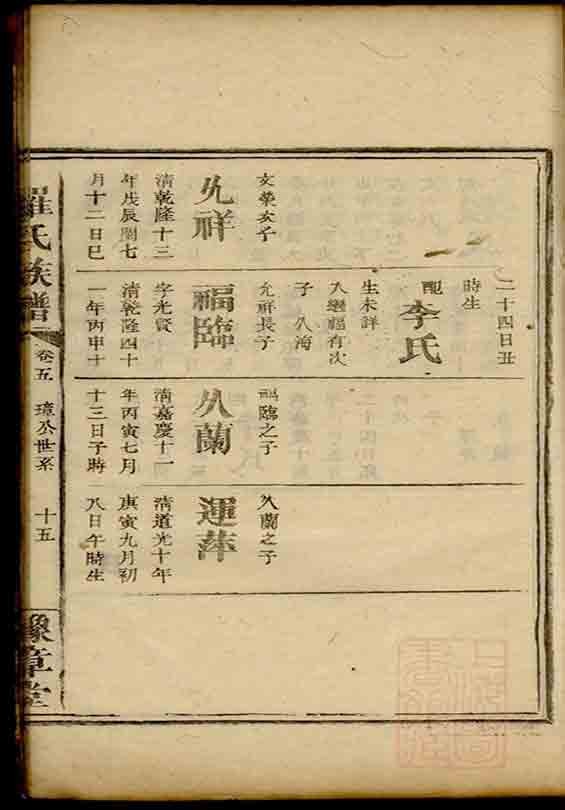 文榮次子
允祥
清乾隆十三
年戊辰閏七
月十二日巳
二十四日丑
時生
配李氏
生未詳
入繼福有次
子久海
允祥長子
福臨
字光賢
清乾隆四十
一年丙申十
福臨之子
久蘭
清嘉慶十一
年丙寅七月
十三日子時
久蘭之子
運萍
清道光十年
庚寅九月初
八日午時生
羅氏族譜 卷五 璋公世系 十五 豫章堂